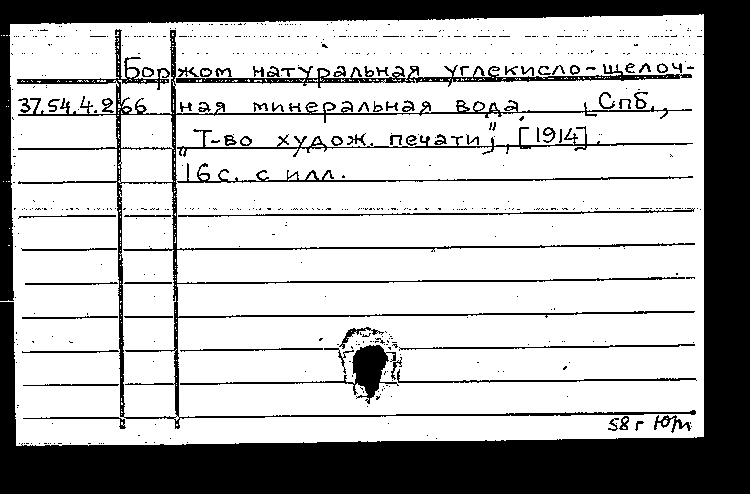 Боржом натуральная углекисло-щелоч-
37.54.4.266 ная минеральная вода. [Спб.,
„Т-во худож. печати"], [1914].
16 с. с илл.
58 г